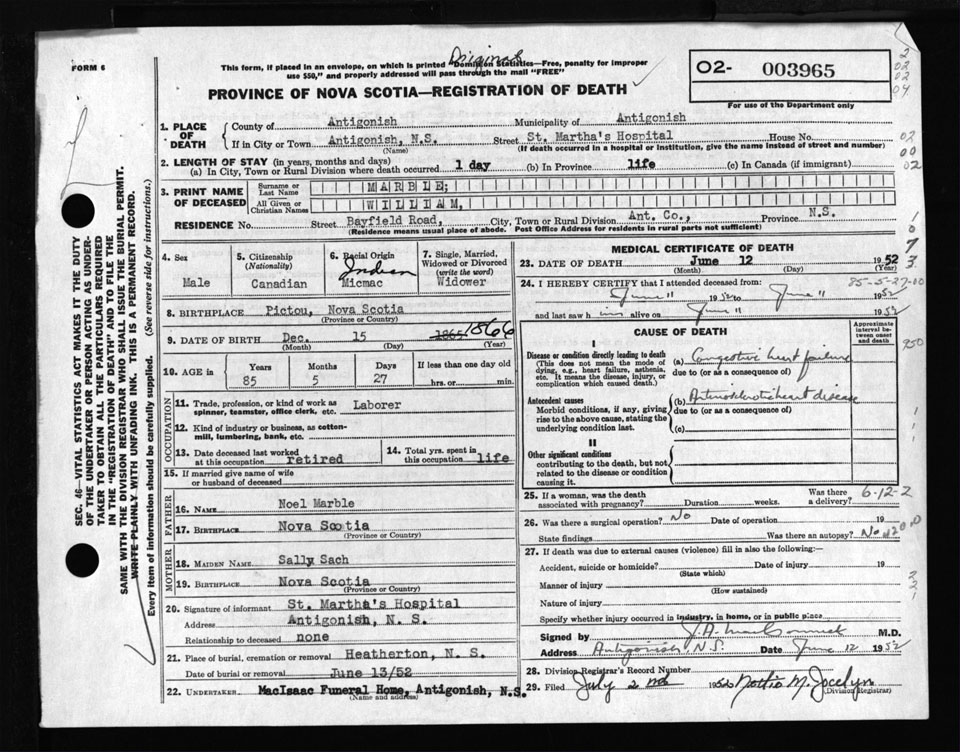 Original
FORM 6
This form, if placed in an envelope, on which is printed "Dominion Statistics—Free, penalty for improper
use $50," and properly addressed will pass through the mail "FREE"
PROVINCE OF NOVA SCOTIA—REGISTRATION OF DEATH
O2- 003965
For use of the Department only
2
02
02
04
1. PLACE OF DEATH
County of Antigonish Municipality of Antigonish
If in City or Town Antigonish, N.S. Street St. Martha's Hospital House No.
(Name) (If death occurred in a hospital or institution, give the name instead of street and number)
02
00
02
2. LENGTH OF STAY (in years, months and days)
(a) In City, Town or Rural Division where death occurred 1 day (b) In Province life (c) In Canada (if immigrant)
3. PRINT NAME OF DECEASED
Surname or Last Name MARBLE;
All Given or Christian Names WILLIAM,
RESIDENCE No. Street Bayfield Road, City, Town or Rural Division Ant. Co., Province N.S.
(Residence means usual place of abode. Post Office Address for residents in rural parts not sufficient)
4. Sex
Male
5. Citizenship
(Nationality)
Canadian
6. Racial Origin
Indian
Micmac
7. Single, Married,
Widowed or Divorced
(write the word)
Widower
8. BIRTHPLACE Pictou, Nova Scotia
(Province or Country)
9. DATE OF BIRTH Dec. 15 1865 1866
(Month) (Day) (Year)
10. AGE in
Years Months Days If less than one day old
85 5 27 hrs. or min.
OCCUPATION
11. Trade, profession, or kind of work as
spinner, teamster, office clerk, etc. Laborer
12. Kind of industry or business, as cotton-
mill, lumbering, bank, etc.
13. Date deceased last worked
at this occupation retired
14. Total yrs. spent in
this occupation life
15. If married give name of wife
or husband of deceased
FATHER
16. NAME Noel Marble
17. BIRTHPLACE Nova Scotia
(Province or Country)
MOTHER
18. MAIDEN NAME Sally Sach
19. BIRTHPLACE Nova Scotia
(Province or Country)
20. Signature of informant St. Martha's Hospital
Address Antigonish, N. S.
Relationship to deceased none
21. Place of burial, cremation or removal Heatherton, N. S.
Date of burial or removal June 13/52
22. UNDERTAKER MacIsaac Funeral Home, Antigonish, N.S.
(Name and address)
MEDICAL CERTIFICATE OF DEATH
23. DATE OF DEATH June 12 1952
(Month) (Day) (Year)
24. I HEREBY CERTIFY that I attended deceased from: 85-5-27-00
June 11 1952 to June 11 1952
and last saw him alive on June 11 1952
CAUSE OF DEATH
Approximate
interval be-
tween onset
and death
I
Disease or condition directly leading to death
(This does not mean the mode of
dying, e.g., heart failure, asthenia,
etc. It means the disease, injury, or
complication which caused death.)
(a) Congestive heart failure
due to (or as a consequence of)
Antecedent causes
Morbid conditions, if any, giving
rise to the above cause, stating the
underlying condition last.
(b) Arteriosclerotic heart disease
due to (or as a consequence of)
(c)
II
Other significant conditions
contributing to the death, but not
related to the disease or condition
causing it.
25. If a woman, was the death Was there 6-12-2
associated with pregnancy? Duration weeks. a delivery?
26. Was there a surgical operation? No Date of operation 19
State findings Was there an autopsy? No
27. If death was due to external causes (violence) fill in also the following:—
Accident, suicide or homicide? Date of injury 19
(State which)
Manner of injury
(How sustained)
Nature of injury
Specify whether injury occurred in industry, in home, or in public place
Signed by J.A. MacCormick M.D.
Address Antigonish N.S. Date June 12 1952
28. Division Registrar's Record Number
29. Filed July 2nd 1952 M. Jocelyn
(Division Registrar)
SEC. 46—VITAL STATISTICS ACT MAKES IT THE DUTY
OF THE UNDERTAKER OR PERSON ACTING AS UNDER-
TAKER TO OBTAIN ALL THE PARTICULARS REQUIRED
IN THE "REGISTRATION OF DEATH" AND TO FILE THE
SAME WITH THE DIVISION REGISTRAR WHO SHALL ISSUE THE BURIAL PERMIT.
WRITE PLAINLY WITH UNFADING INK. THIS IS A PERMANENT RECORD.
Every item of information should be carefully supplied. (See reverse side for instructions.)